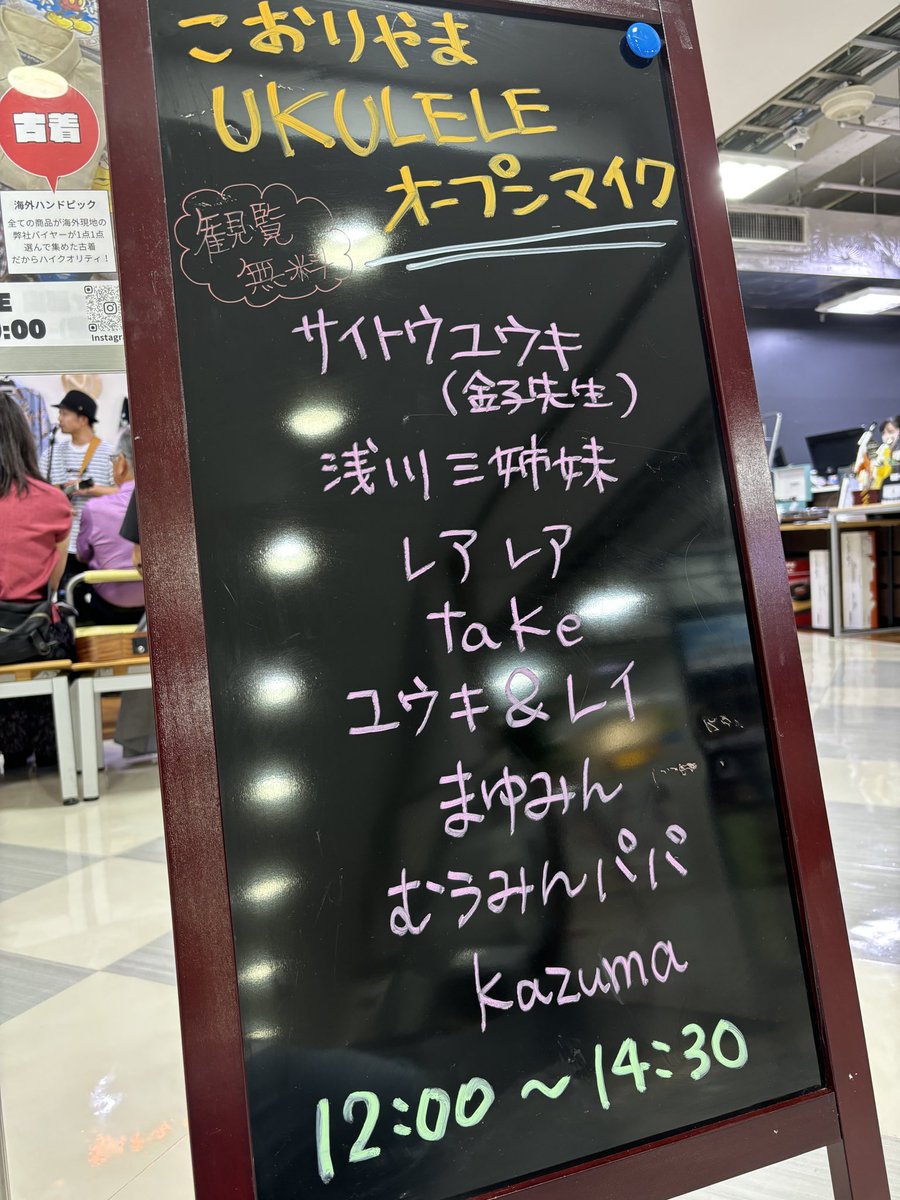 こおりやま
UKULELE
オープンマイク
観覧
無料
サイトウユウキ
(金子先生)
浅川三姉妹
レアレア
take
ユウキ&レイ
まゆみん
むうみんパパ
kazuma
12:00～14:30
古着
海外ハンドピック
全ての商品が海外現地の
弊社バイヤーが1点1点
選んで集めた古着
だからハイクオリティ！